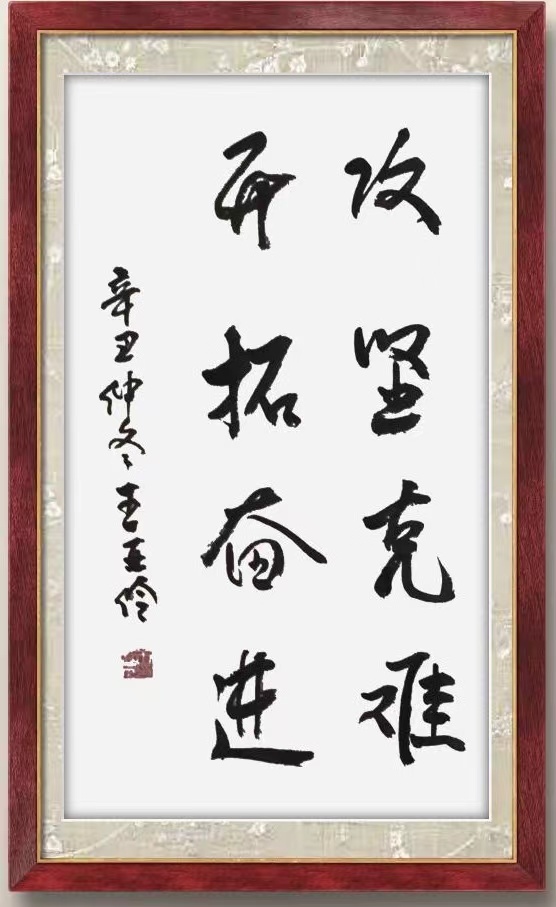 攻坚克难
开拓奋进
辛丑仲冬 亚伶